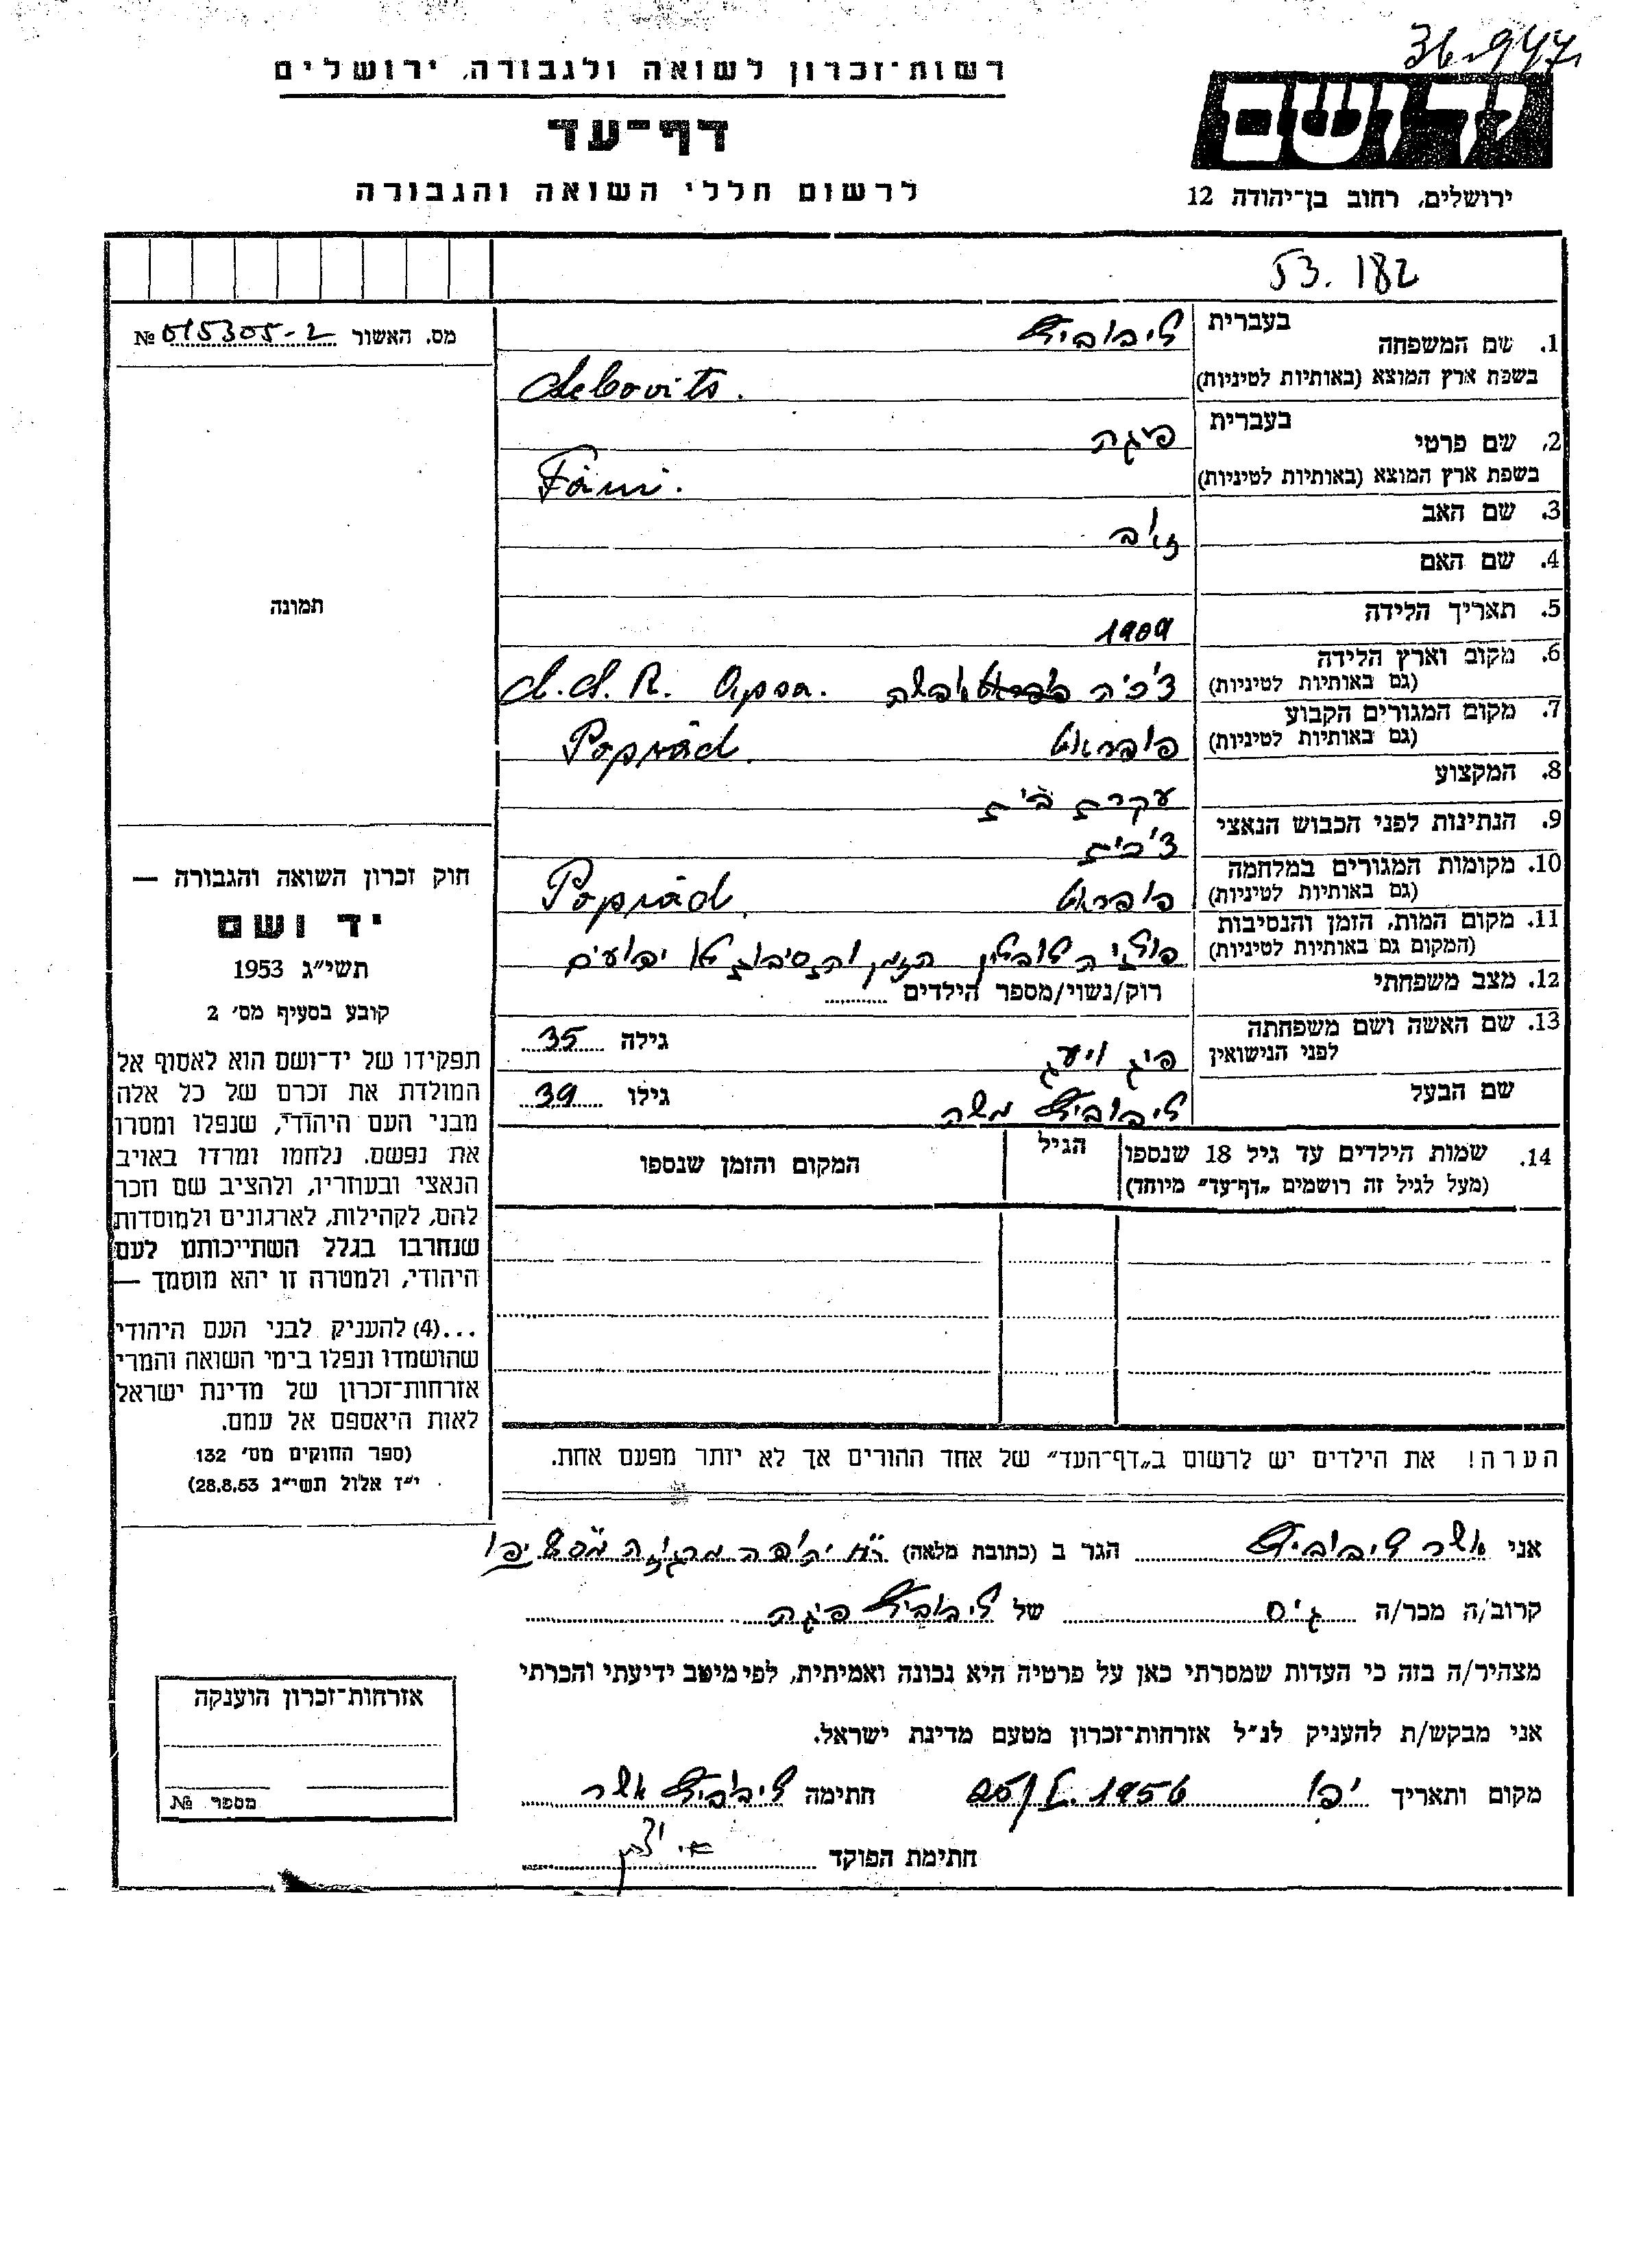 36.947
רשות־זכרון לשואה ולגבורה, ירושלים
דף־עד
לרשום חללי השואה והגבורה
יד ושם
ירושלים, רחוב בן־יהודה 12
53. 182
מס. האשור № 015305-2
תמונה
חוק זכרון השואה והגבורה —
יד ושם
תשי״ג 1953
קובע בסעיף מס׳ 2
תפקידו של יד־ושם הוא לאסוף אל
המולדת את זכרם של כל אלה
מבני העם היהודי, שנפלו ומסרו
את נפשם. נלחמו ומרדו באויב
הנאצי ובעוזריו, ולהציב שם וזכר
להם, לקהילות, לארגונים ולמוסדות
שנחרבו בגלל השתייכותם לעם
היהודי, ולמטרה זו יהא מוסמך —
...(4) להעניק לבני העם היהודי
שהושמדו ונפלו בימי השואה והמרי
אזרחות־זכרון של מדינת ישראל
לאות היאספם אל עמם.
(ספר החוקים מס׳ 132
י״ז אלול תשי״ג 28.8.53)
1. שם המשפחה בעברית ליבוביץ
בשפת ארץ המוצא (באותיות לטיניות) Lebovits.
2. שם פרטי בעברית פיגה
בשפת ארץ המוצא (באותיות לטיניות) Fáni.
3. שם האב זאיב
4. שם האם
5. תאריך הלידה 1909
6. מקום וארץ הלידה
(גם באותיות לטיניות) צ׳כיה אפשה Č.S.R. Apsa.
7. מקום המגורים הקבוע
(גם באותיות לטיניות) פופראט Poprád.
8. המקצוע עקרת בית
9. הנתינות לפני הכבוש הנאצי צ׳כית
10. מקומות המגורים במלחמה
(גם באותיות לטיניות) פופראט Poprád.
11. מקום המות, הזמן והנסיבות
(המקום גם באותיות לטיניות) פולניה לובלין הזמן והנסיבות לא ידועים
12. מצב משפחתי רוק/נשוי/מספר הילדים
13. שם האשה ושם משפחתה
לפני הנישואין גילה 35
שם הבעל ליבוביץ משה גילו 39
14. שמות הילדים עד גיל 18 שנספו הגיל המקום והזמן שנספו
(מעל לגיל זה רושמים „דף־עד״ מיוחד)
הערה! את הילדים יש לרשום ב„דף־העד״ של אחד ההורים אך לא יותר מפעם אחת.
אני אשר ליבוביץ הגר ב (כתובת מלאה) רח יהודה מרגוזה יפו
קרוב/ה מכר/ה גיס של ליבוביץ פיגה
מצהיר/ה בזה כי העדות שמסרתי כאן על פרטיה היא נכונה ואמיתית, לפי מיטב ידיעתי והכרתי
אני מבקש/ת להעניק לנ״ל אזרחות־זכרון מטעם מדינת ישראל.
מקום ותאריך יפו 25/I. 1956 חתימה ליבוביץ אשר
חתימת הפוקד
אזרחות־זכרון הוענקה
מספר №